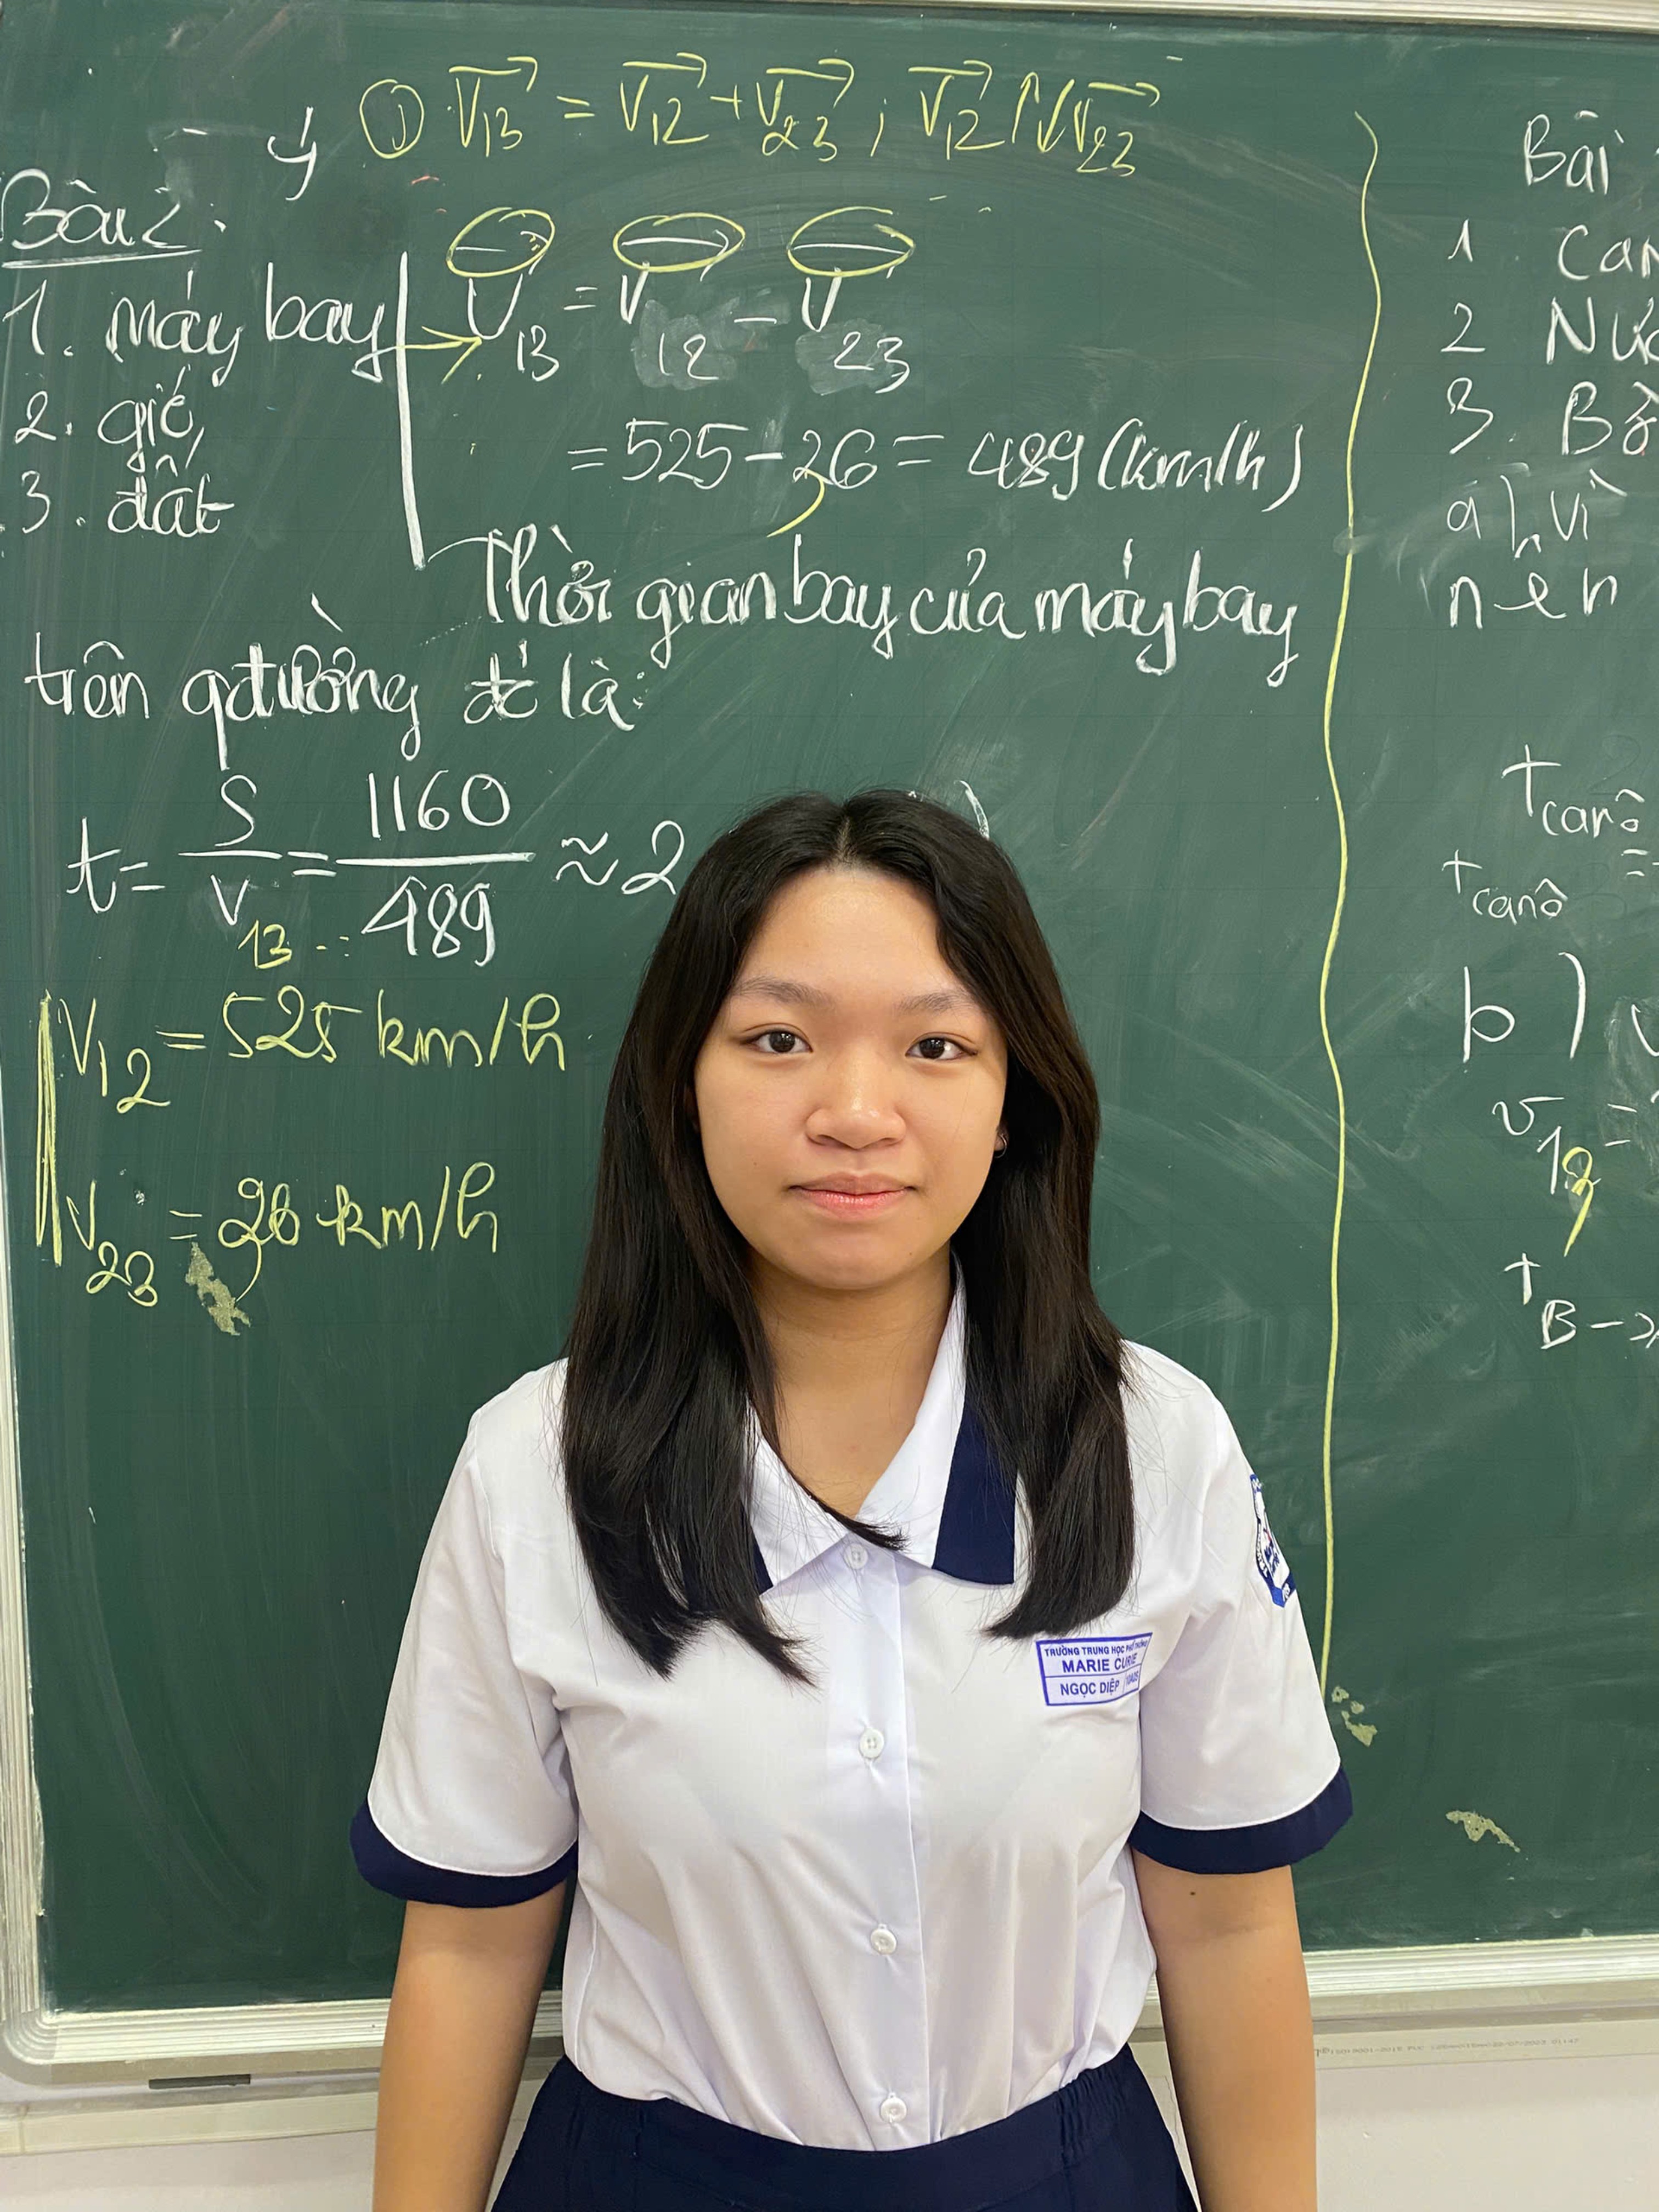 ý ① V₁₃ = V₁₂ + V₂₃ ; V₁₂ ↑↓ V₂₃
Bài 2.
1. máy bay
2. gió,
3. đất
→ V₁₃ = V₁₂ - V₂₃
= 525 - 36 = 489 (km/h)
Thời gian bay của máy bay
trên qđường đó là:
t = S / V₁₃ = 1160 / 489 ≈ 2
V₁₂ = 525 km/h
V₂₃ = 36 km/h
Bài
1 Can
2 Nư
3. Bờ
a), vì
nên
t canô =
t canô
b)
v₁₃ =
t B→
TRƯỜNG TRUNG HỌC PHỔ THÔNG
MARIE CURIE
NGỌC DIỆP